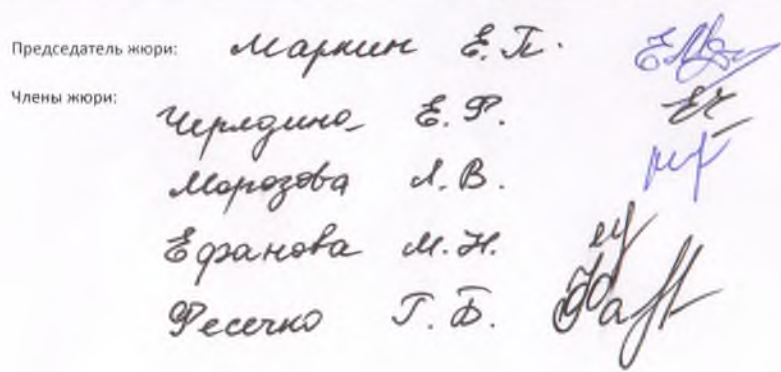 Председатель жюри: Маркин Е.П.
Члены жюри:
Черядина Е.Ф.
Морозова Л.В.
Ефанова М.Н.
Фесечко Г.Б.